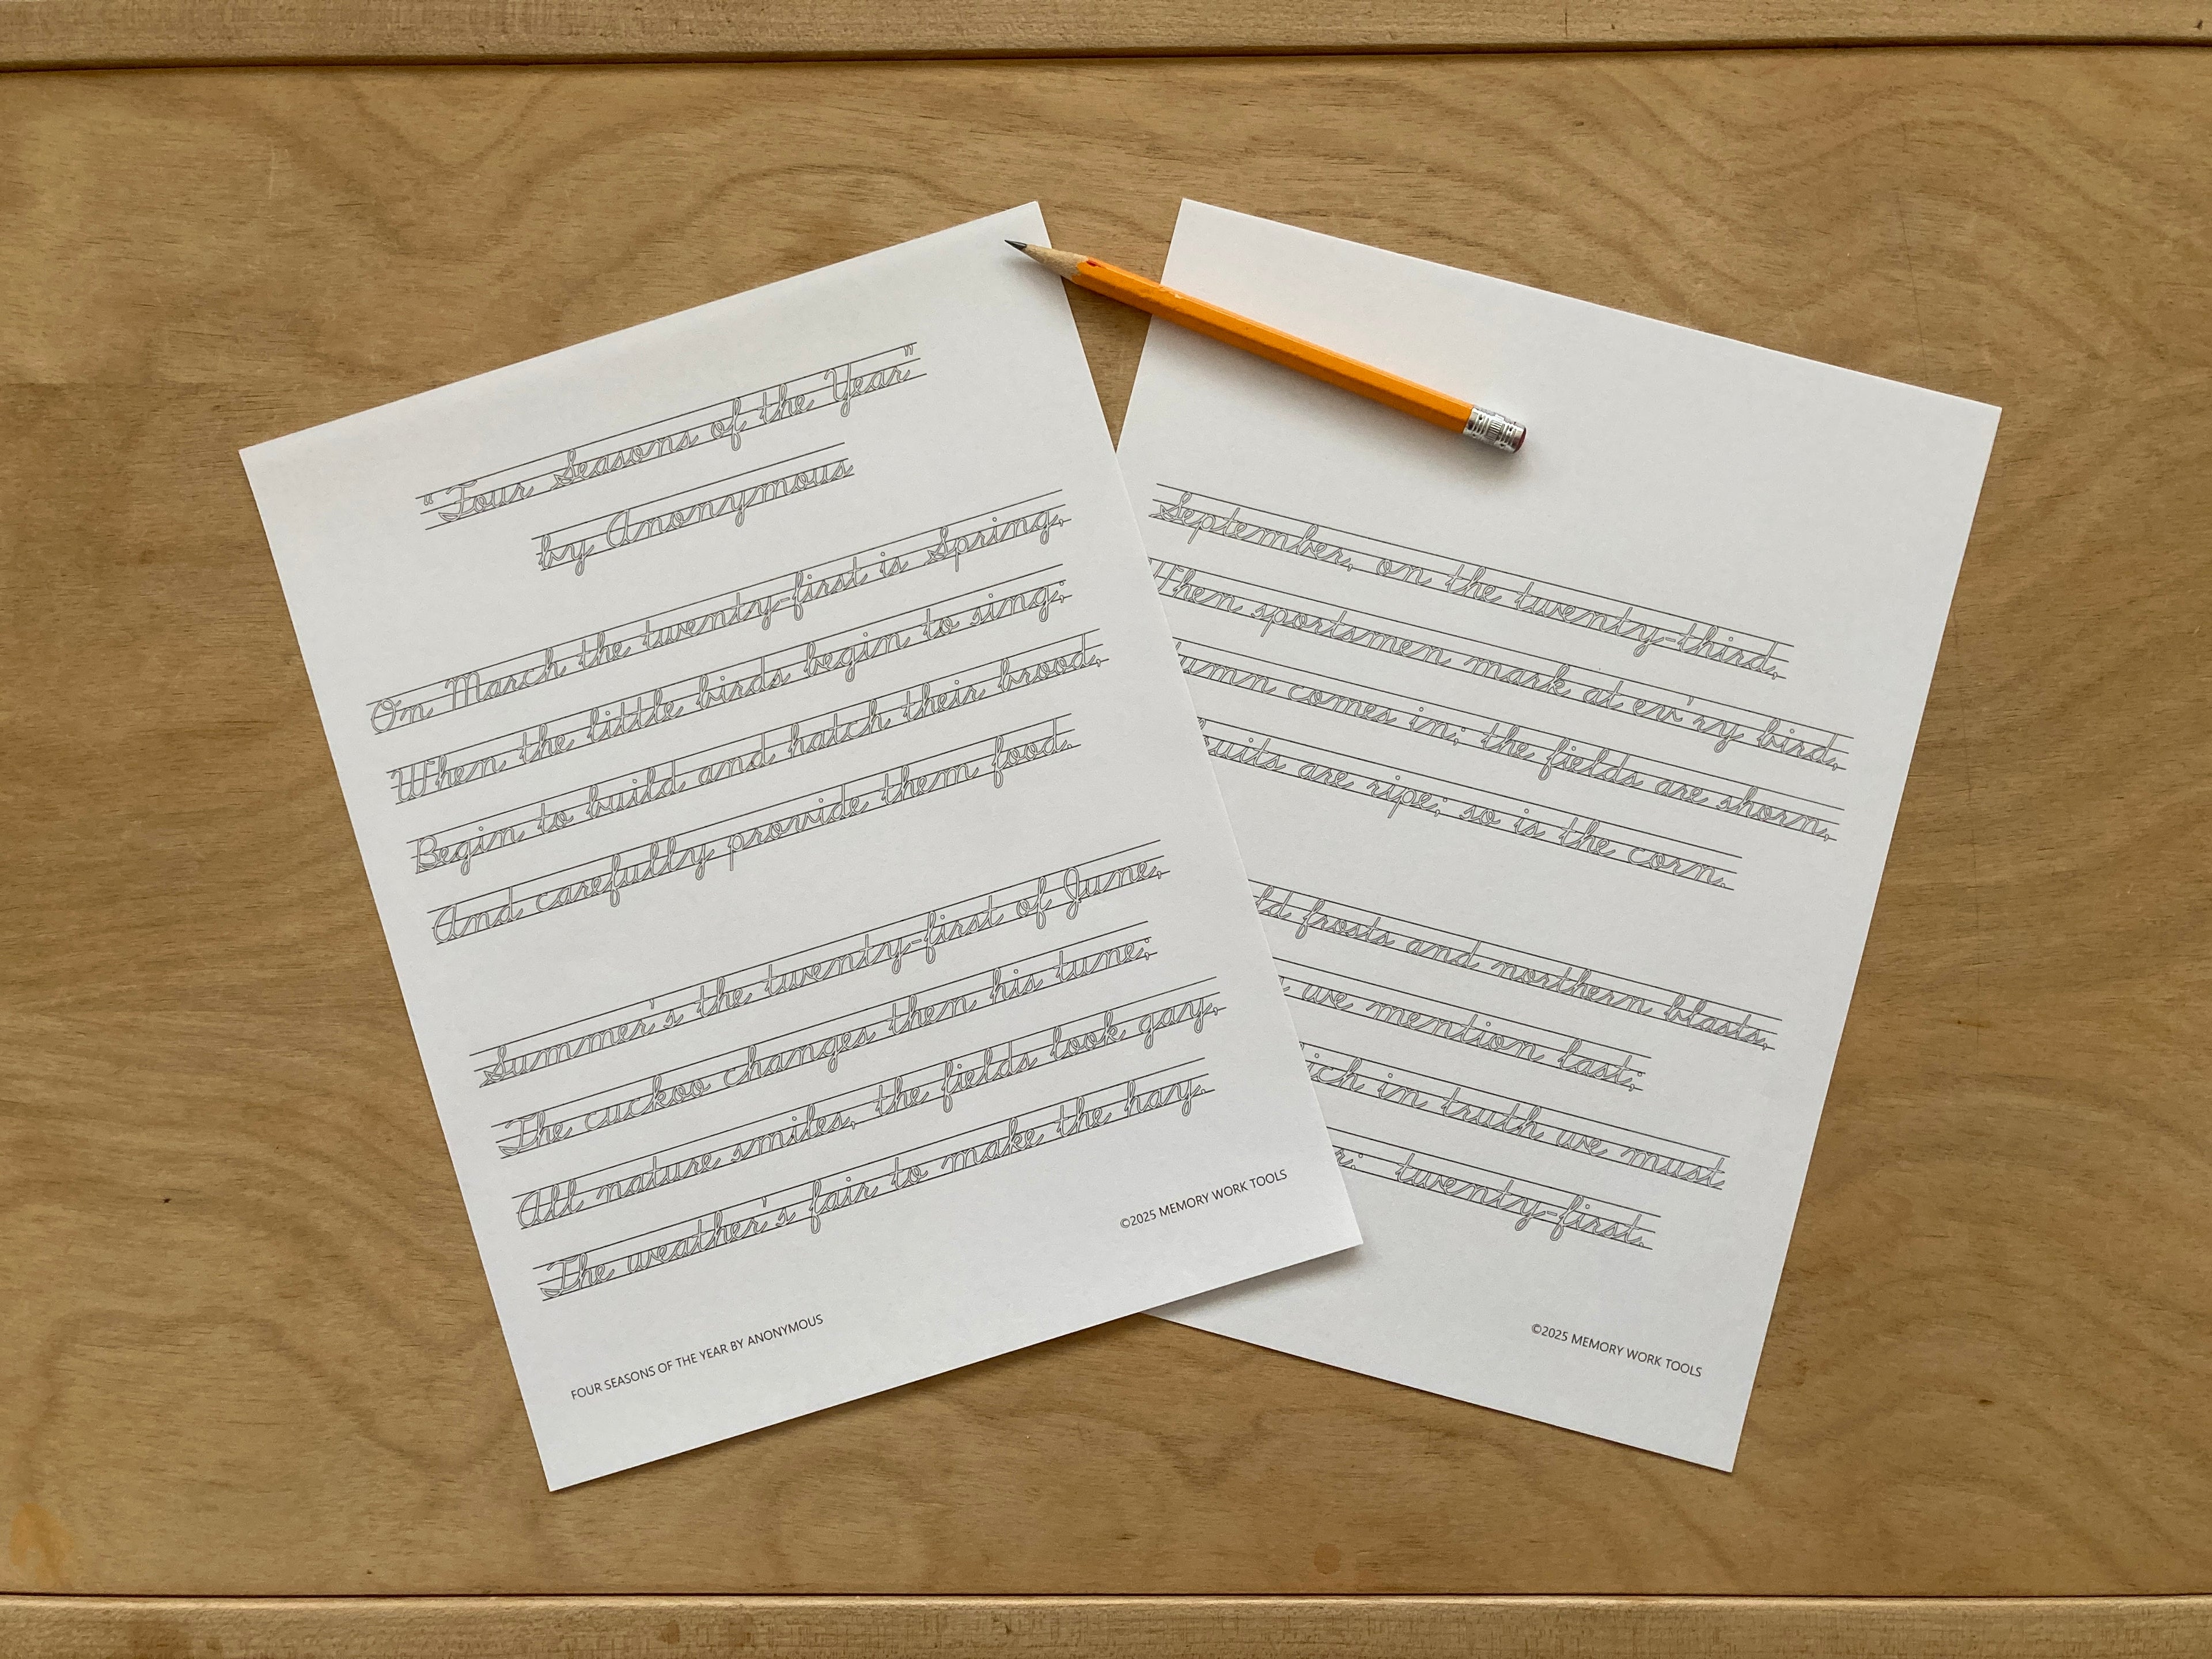 "Four Seasons of the Year"
by Anonymous
On March the twenty-first is Spring,
When the little birds begin to sing;
Begin to build and hatch their brood,
And carefully provide them food.
Summer's the twenty-first of June,
The cuckoo changes then his tune;
All nature smiles, the fields look gay,
The weather's fair to make the hay.
FOUR SEASONS OF THE YEAR BY ANONYMOUS
©2025 MEMORY WORK TOOLS
September, on the twenty-third,
When sportsmen mark at ev'ry bird,
comes in; the fields are shorn,
are ripe; so is the corn.
frosts and northern blasts,
we mention last;
in truth we must
twenty-first.
©2025 MEMORY WORK TOOLS